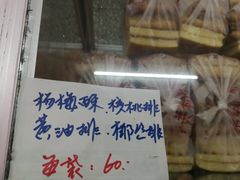 杨梅酥.核桃排
黄油排.椰丝排
每袋：60.